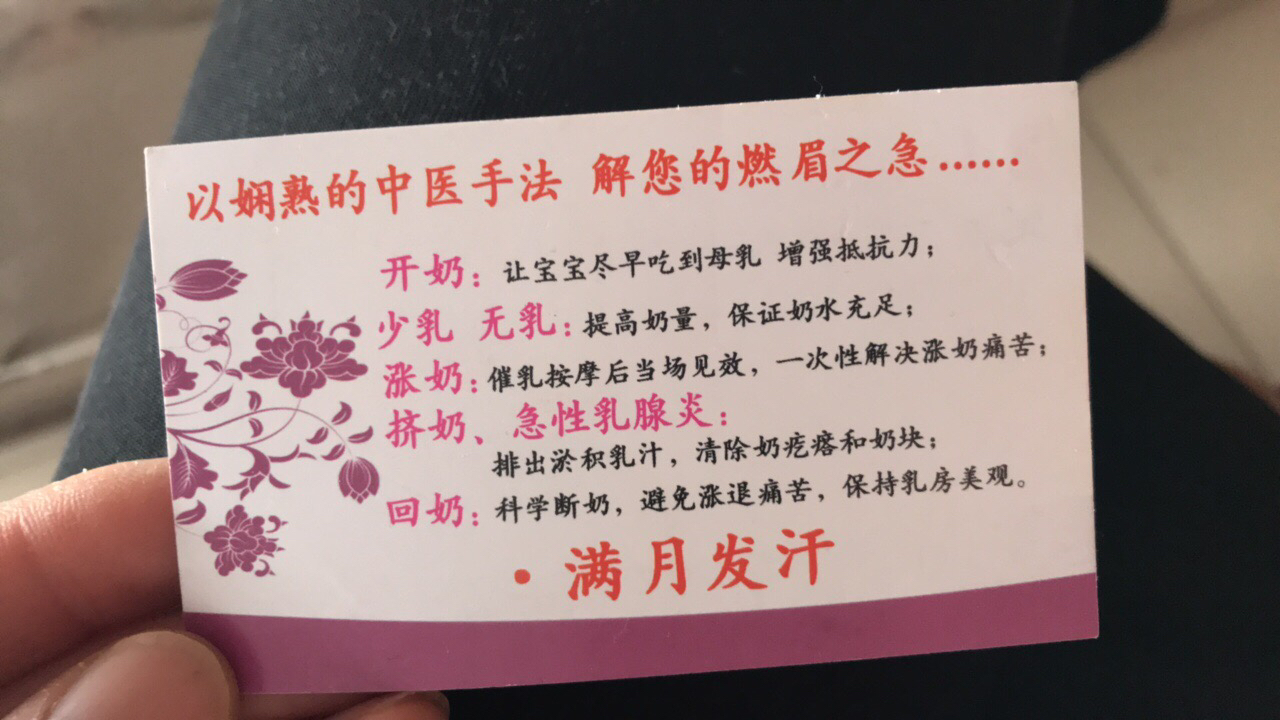 以娴熟的中医手法 解您的燃眉之急……
开奶：让宝宝尽早吃到母乳 增强抵抗力；
少乳 无乳：提高奶量，保证奶水充足；
涨奶：催乳按摩后当场见效，一次性解决涨奶痛苦；
挤奶、急性乳腺炎：
排出淤积乳汁，清除奶疙瘩和奶块；
回奶：科学断奶，避免涨退痛苦，保持乳房美观。
·满月发汗